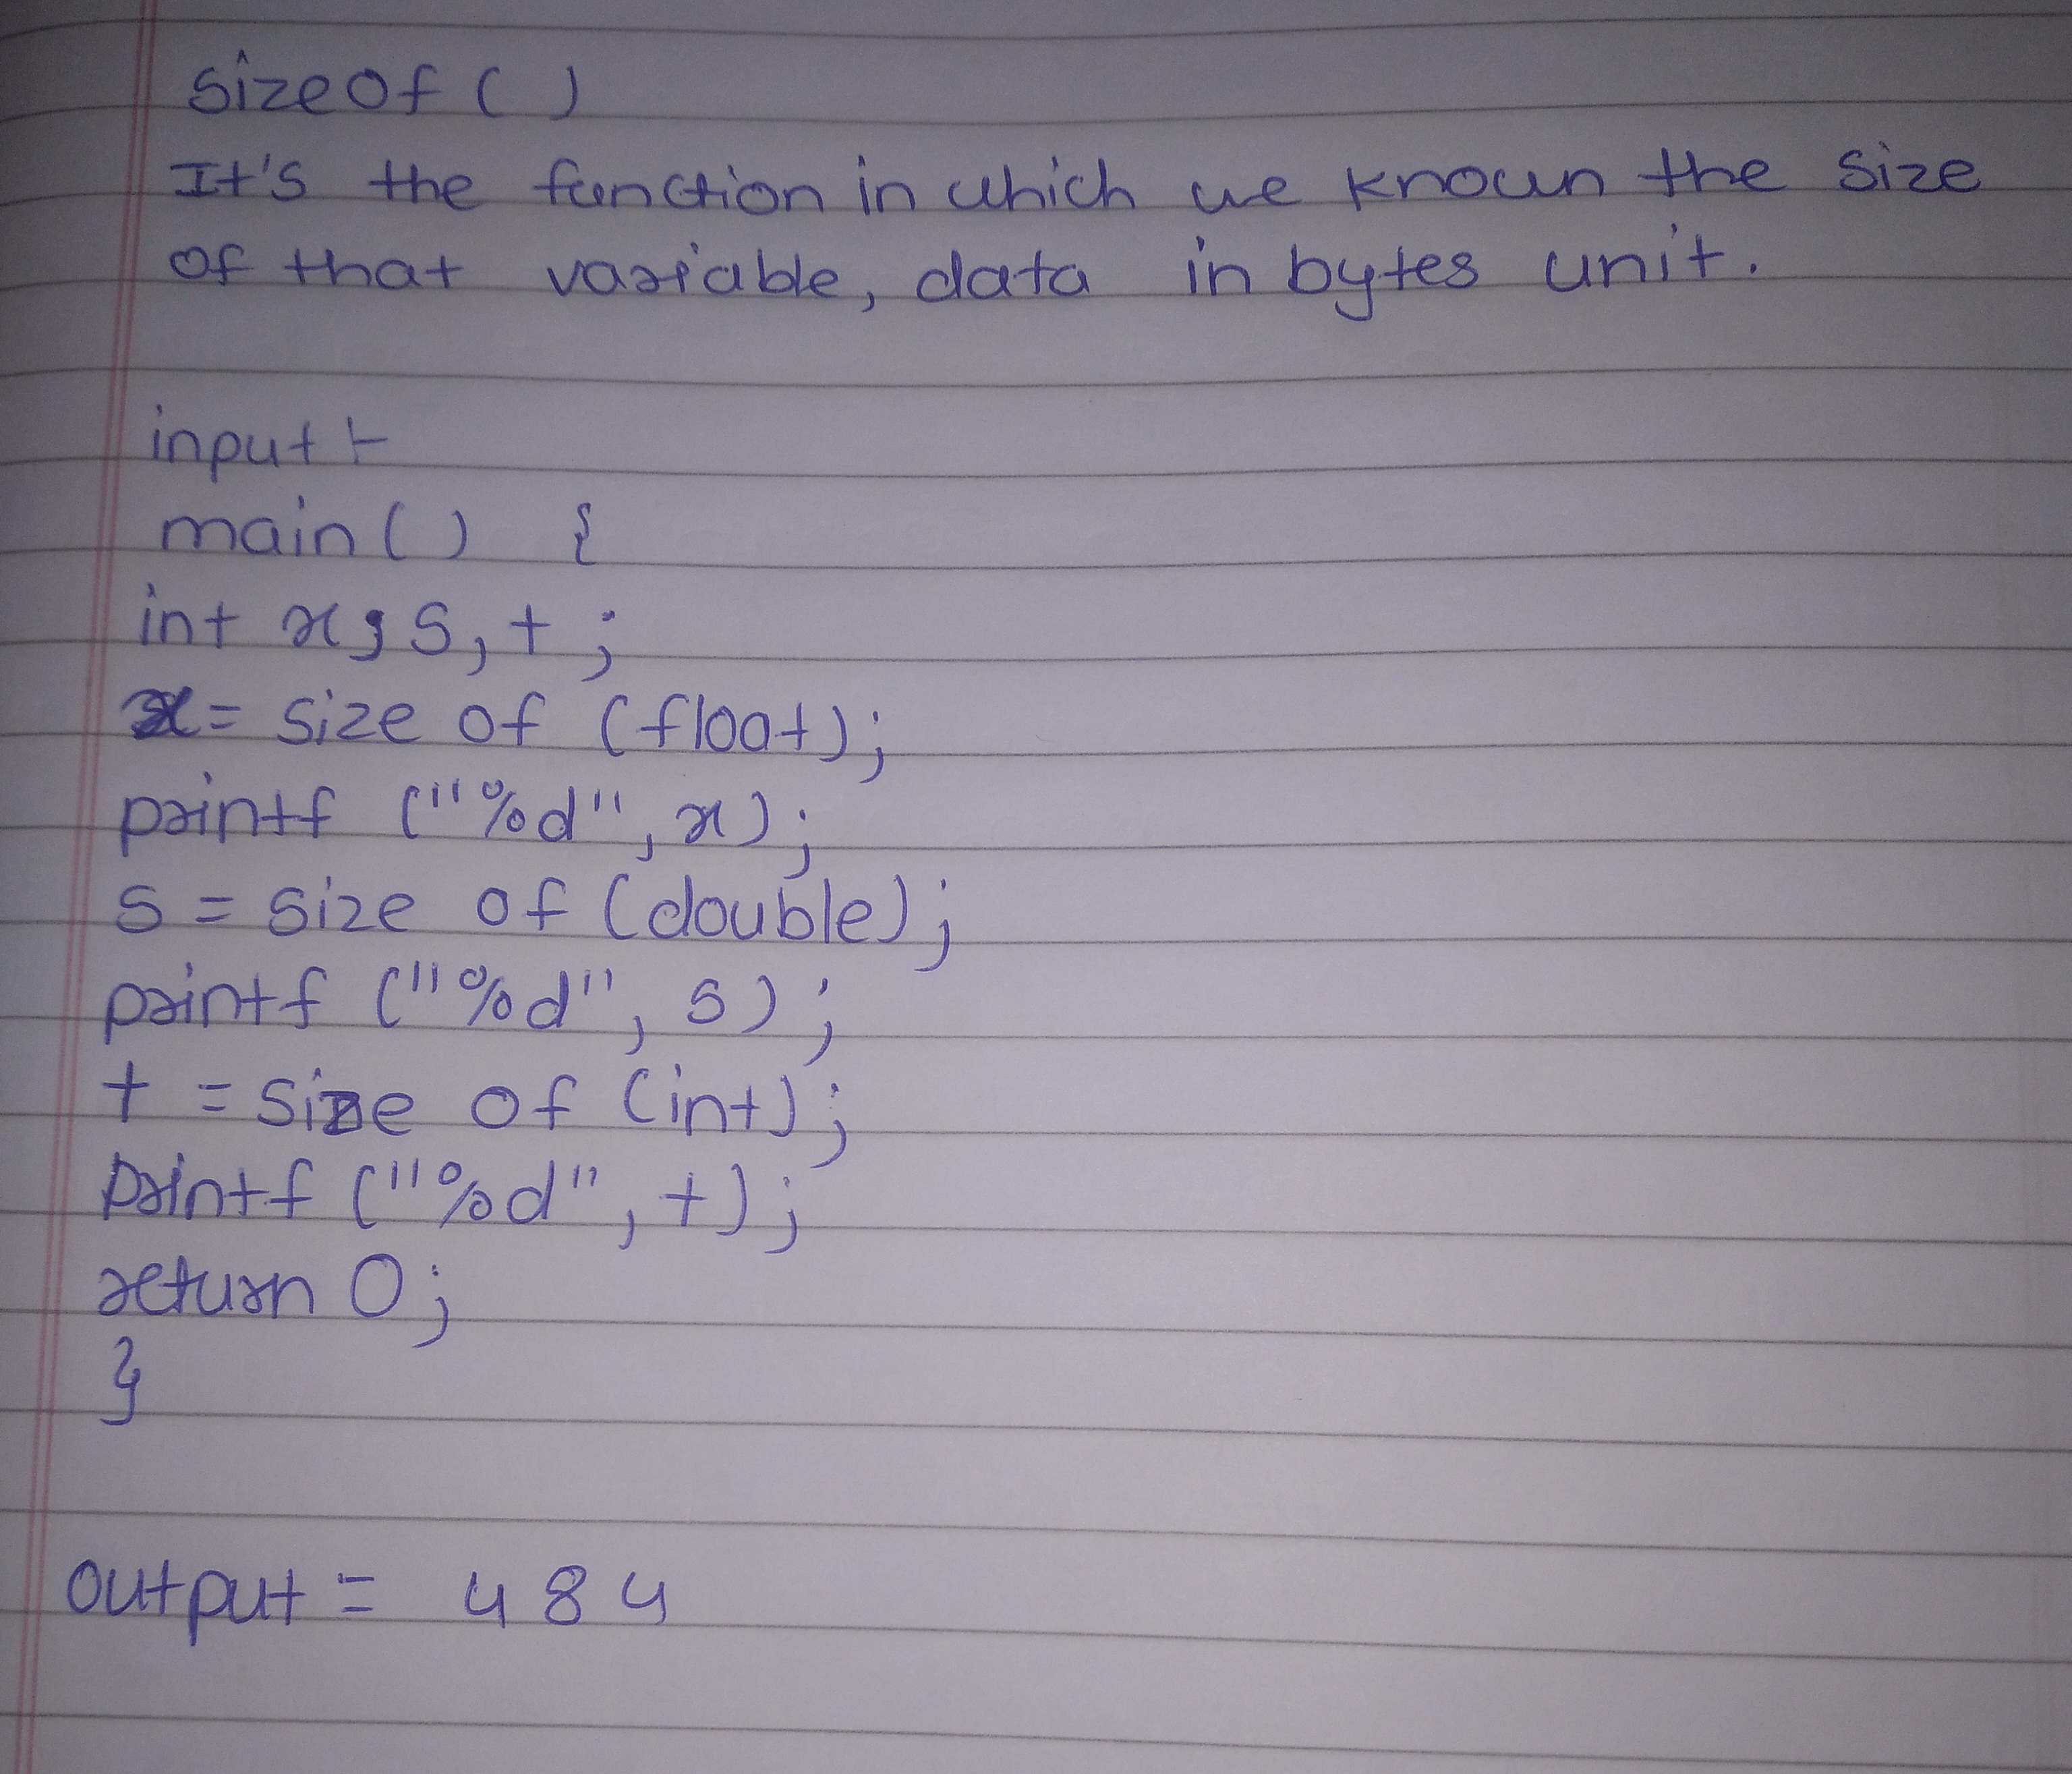 sizeof ( )
It's the function in which we known the size
of that variable, data in bytes unit.
input :-
main ( ) {
int x, s, t ;
x = size of (float);
printf ("%d", x);
s = size of (double);
printf ("%d", s);
t = size of (int);
printf ("%d", t);
return 0;
}
output = 4 8 4